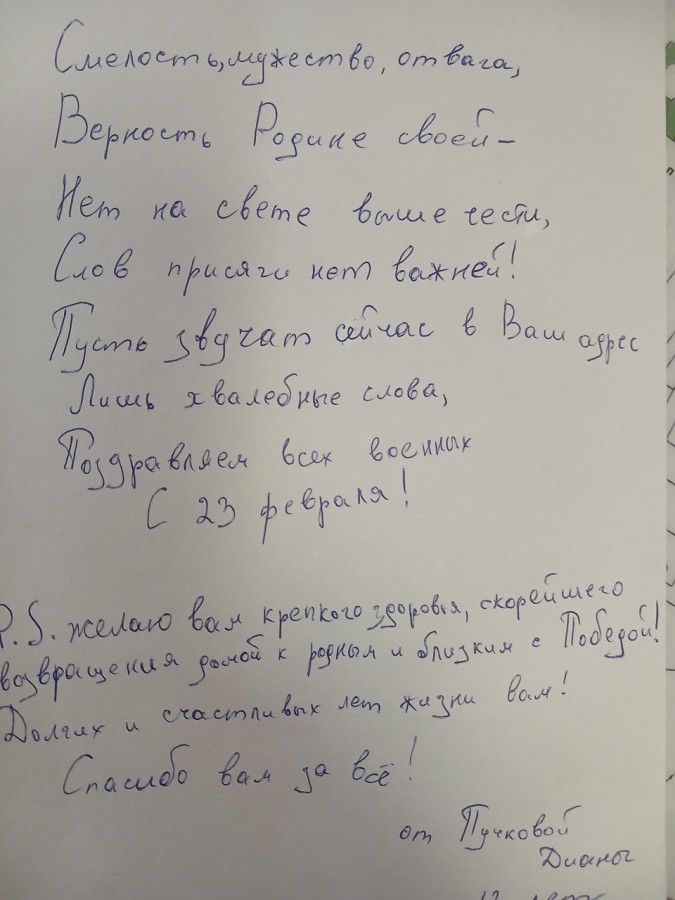 Смелость, мужество, отвага,
Верность Родине своей –
Нет на свете выше чести,
Слов присяги нет важней!
Пусть звучат сейчас в Ваш адрес
Лишь хвалебные слова,
Поздравляем всех военных
С 23 февраля!
P.S. желаю вам крепкого здоровья, скорейшего
возвращения домой к родным и близким с Победой!
Долгих и счастливых лет жизни вам!
Спасибо вам за всё!
от Пучковой
Дианы